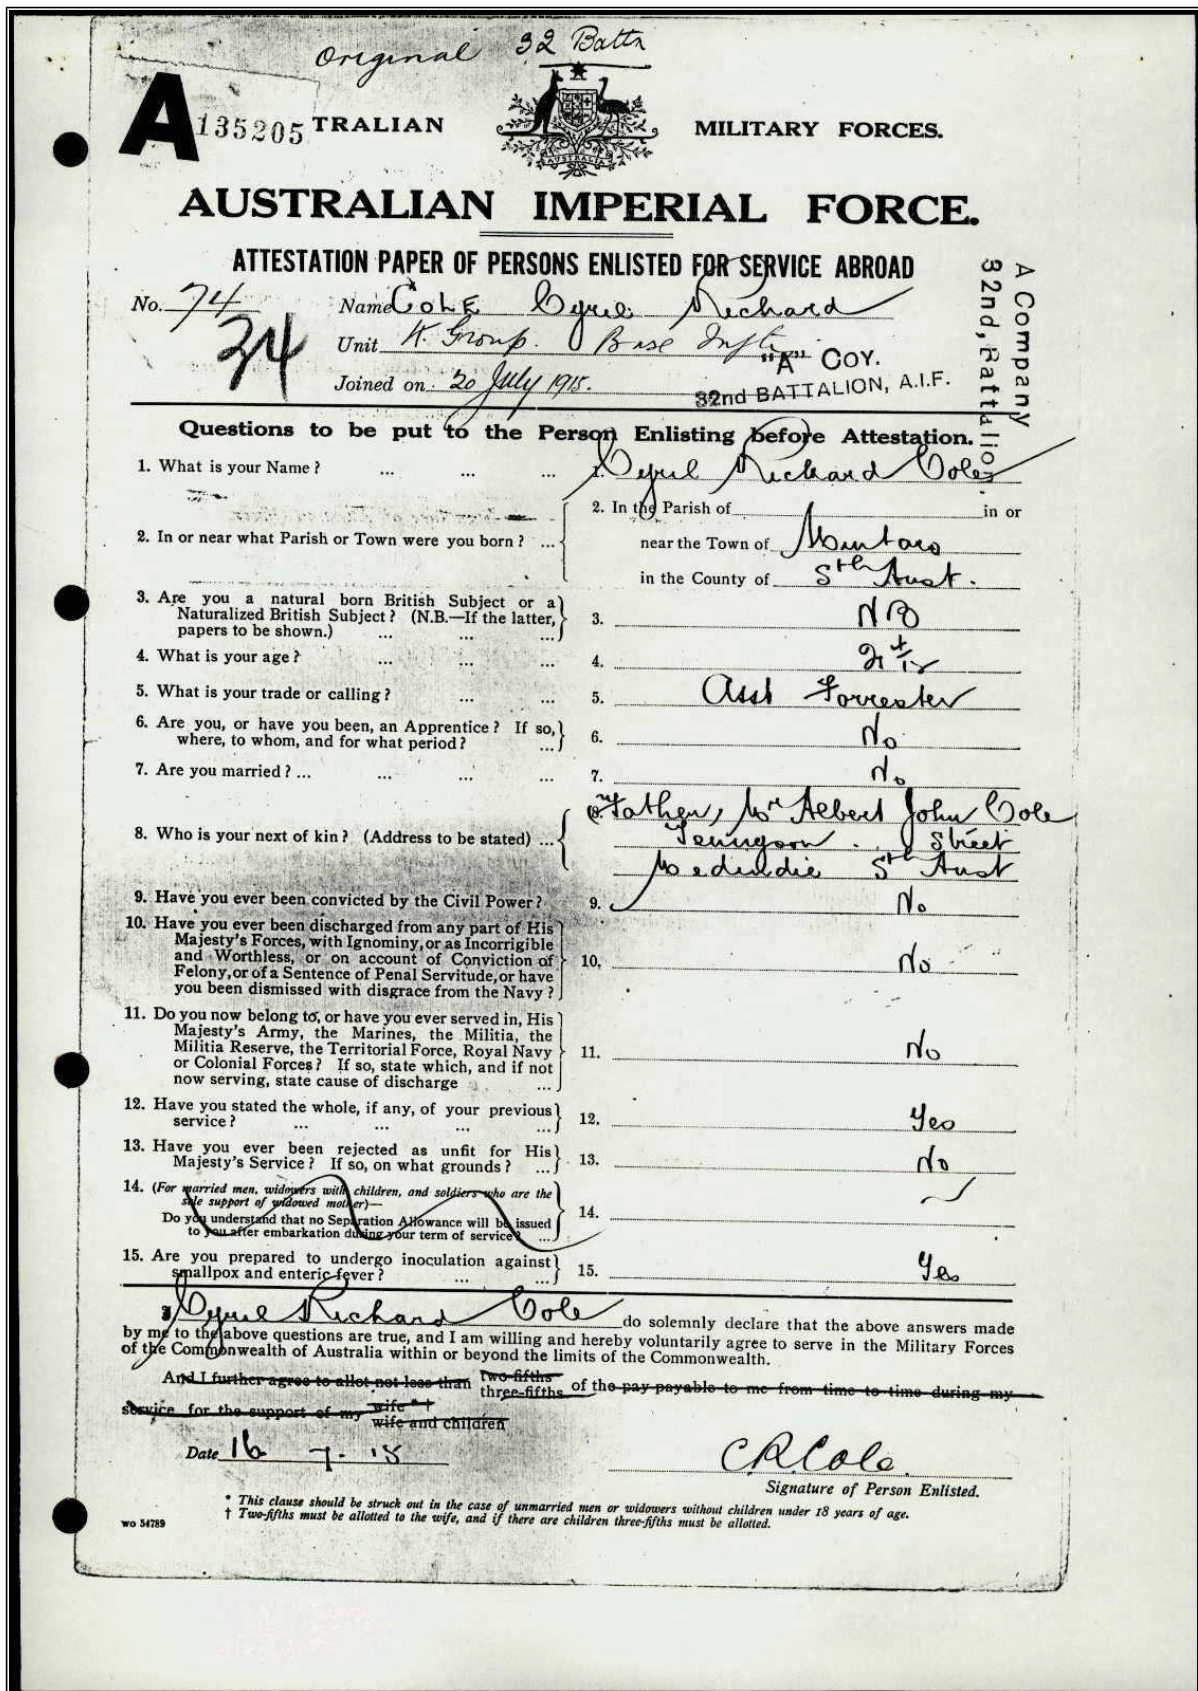 Original 32 Battn
A 135205 TRALIAN MILITARY FORCES.
AUSTRALIA
AUSTRALIAN IMPERIAL FORCE.
ATTESTATION PAPER OF PERSONS ENLISTED FOR SERVICE ABROAD
No. 74 Name COLE Cyril Richard
34 Unit K. Group. Base Inft
"A" COY.
Joined on 20 July 1915.
32nd BATTALION, A.I.F.
A Company
32nd, Battalion.
Questions to be put to the Person Enlisting before Attestation.
1. What is your Name? ... ... ... 1. Cyril Richard Cole
2. In the Parish of in or
2. In or near what Parish or Town were you born? ... near the Town of Mintaro
in the County of Sth Aust.
3. Are you a natural born British Subject or a
Naturalized British Subject? (N.B.—If the latter, 3. NB
papers to be shown.) ... ... ...
4. What is your age? ... ... ... 4. 21 4/12
5. What is your trade or calling? ... ... 5. Asst Forrester
6. Are you, or have you been, an Apprentice? If so, 6. No
where, to whom, and for what period? ...
7. Are you married? ... ... ... ... 7. No
8. Father, Mr Albert John Cole
8. Who is your next of kin? (Address to be stated) ... Tennyson Street
Medindie Sth Aust
9. Have you ever been convicted by the Civil Power? 9. No
10. Have you ever been discharged from any part of His
Majesty's Forces, with Ignominy, or as Incorrigible
and Worthless, or on account of Conviction of 10. No
Felony, or of a Sentence of Penal Servitude, or have
you been dismissed with disgrace from the Navy?
11. Do you now belong to, or have you ever served in, His
Majesty's Army, the Marines, the Militia, the
Militia Reserve, the Territorial Force, Royal Navy 11. No
or Colonial Forces? If so, state which, and if not
now serving, state cause of discharge ...
12. Have you stated the whole, if any, of your previous 12. Yes
service? ... ... ... ...
13. Have you ever been rejected as unfit for His 13. No
Majesty's Service? If so, on what grounds? ...
14. (For married men, widowers with children, and soldiers who are the
sole support of widowed mother)—
Do you understand that no Separation Allowance will be issued 14.
to you after embarkation during your term of service? ...
15. Are you prepared to undergo inoculation against 15. Yes
smallpox and enteric fever? ... ...
I Cyril Richard Cole do solemnly declare that the above answers made
by me to the above questions are true, and I am willing and hereby voluntarily agree to serve in the Military Forces
of the Commonwealth of Australia within or beyond the limits of the Commonwealth.
And I further agree to allot not less than two-fifths three-fifths of the pay payable to me from time to time during my
service for the support of my wife *† wife and children
Date 16 7. 15 C.R. Cole.
Signature of Person Enlisted.
* This clause should be struck out in the case of unmarried men or widowers without children under 18 years of age.
† Two-fifths must be allotted to the wife, and if there are children three-fifths must be allotted.
WO 54789